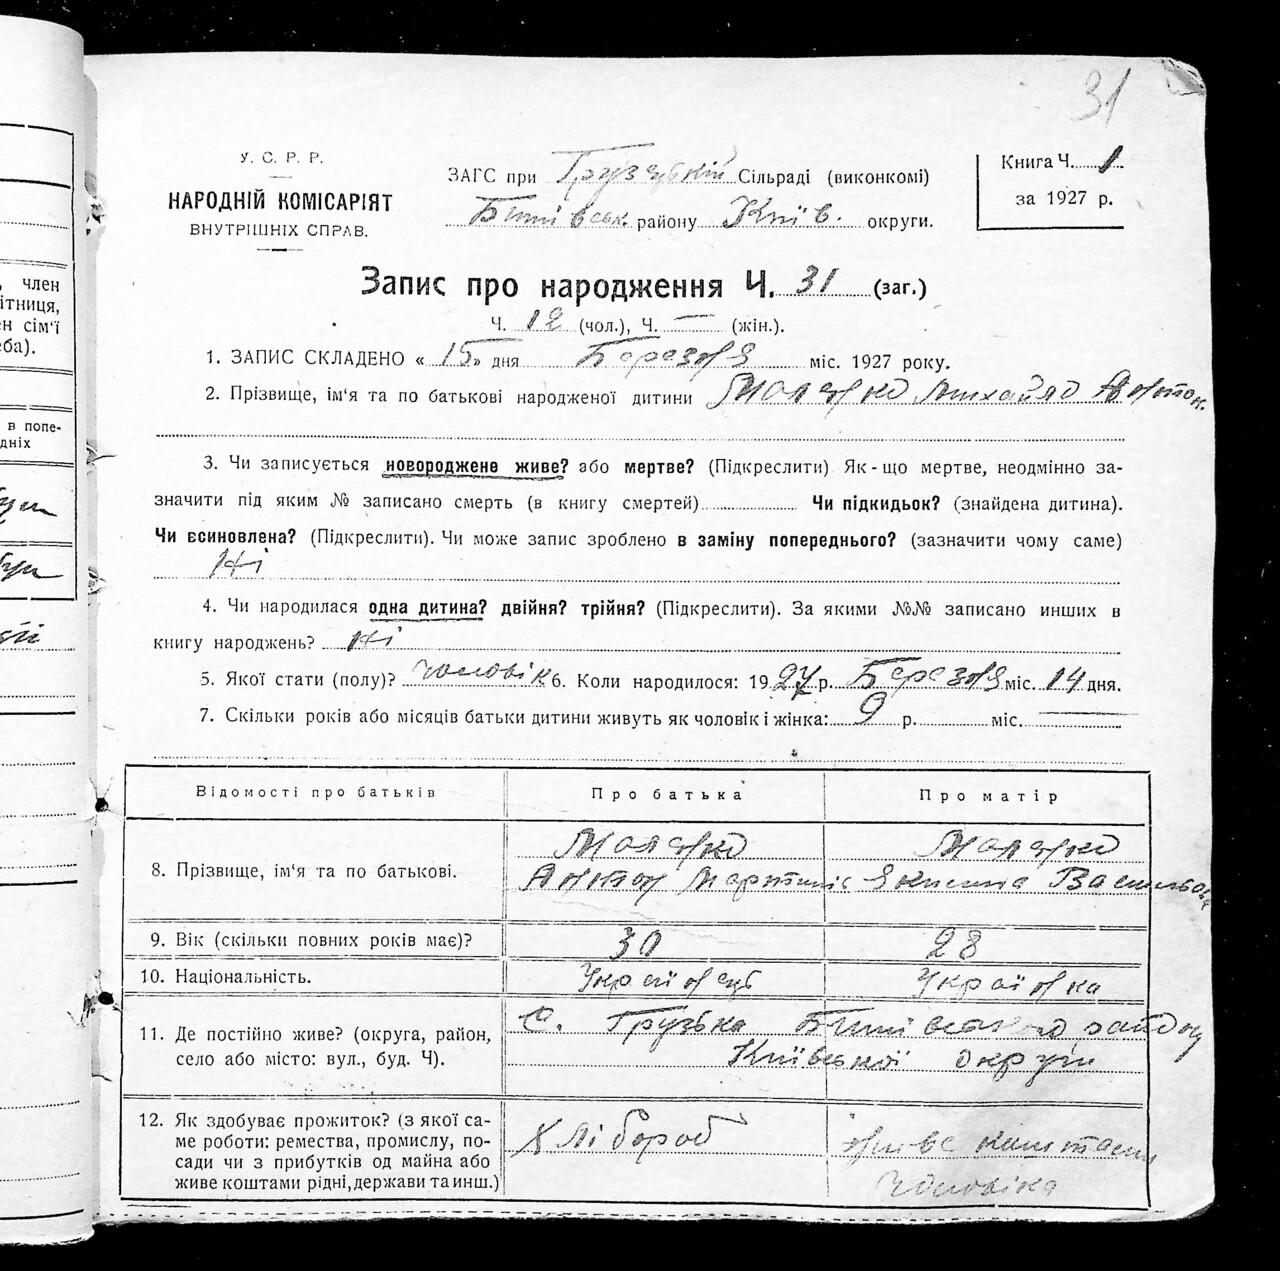 31
У. С. Р. Р.
НАРОДНІЙ КОМІСАРІЯТ
ВНУТРІШНІХ СПРАВ.
ЗАГС при Грузцькій Сільраді (виконкомі)
Бишівськ. району Київ. округи.
Книга Ч. 1
за 1927 р.
Запис про народження Ч. 31 (заг.)
Ч. 12 (чол.), Ч. — (жін.).
1. ЗАПИС СКЛАДЕНО « 15 » дня Березня міс. 1927 року.
2. Прізвище, ім'я та по батькові народженої дитини Михайло Антон.
3. Чи записується новороджене живе? або мертве? (Підкреслити) Як-що мертве, неодмінно за-
значити під яким № записано смерть (в книгу смертей) Чи підкидьок? (знайдена дитина).
Чи всиновлена? (Підкреслити). Чи може запис зроблено в заміну попереднього? (зазначити чому саме)
Ні
4. Чи народилася одна дитина? двійня? трійня? (Підкреслити). За якими №№ записано инших в
книгу народжень? Ні
5. Якої стати (полу)? Чоловік 6. Коли народилося: 1927 р. Березня міс. 14 дня.
7. Скільки років або місяців батьки дитини живуть як чоловік і жінка: 9 р. міс. —
Відомості про батьків Про батька Про матір
8. Прізвище, ім'я та по батькові.
Антон Мартинів Васильова
9. Вік (скільки повних років має)? 30 28
10. Національність. Українець Українка
11. Де постійно живе? (округа, район,
село або місто: вул., буд. Ч).
С. Грузька Бишівського району
Київської округи
12. Як здобуває прожиток? (з якої са-
ме роботи: ремества, промислу, по-
сади чи з прибутків од майна або
живе коштами рідні, держави та инш.)
Хлібороб
живе коштами
чоловіка
, член
ітниця,
н сім'ї
еба).
в попе-
дніх